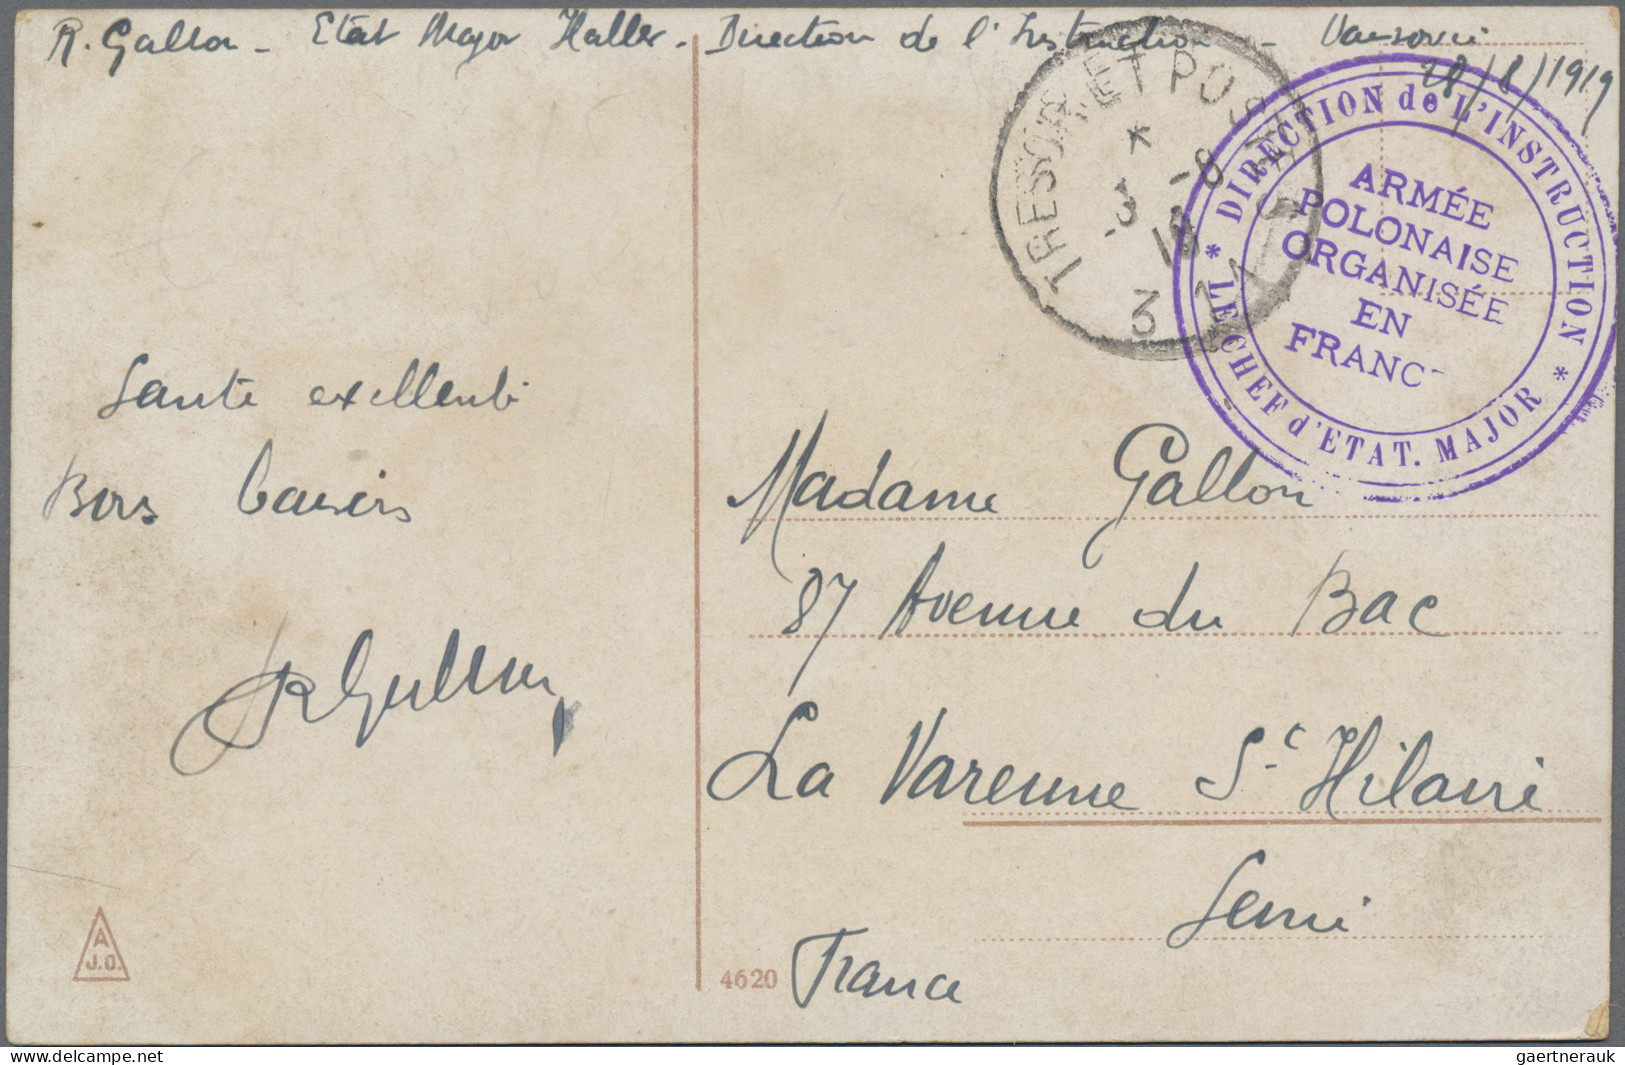 R. Gallon - Etat Major Haller. Direction de l'Instruction - Varsovie
28/8/1919
TRESOR ET POSTES
*
3 -8
19
3
* DIRECTION de L'INSTRUCTION *
LE CHEF d'ETAT. MAJOR
ARMÉE
POLONAISE
ORGANISÉE
EN
FRANC
Santé excellente
Bons baisers
RGallon
Madame Gallon
87 Avenue du Bac
La Varenne St Hilaire
Seine
France
A
J.O.
4620
gaertnerauk
delcampe.net